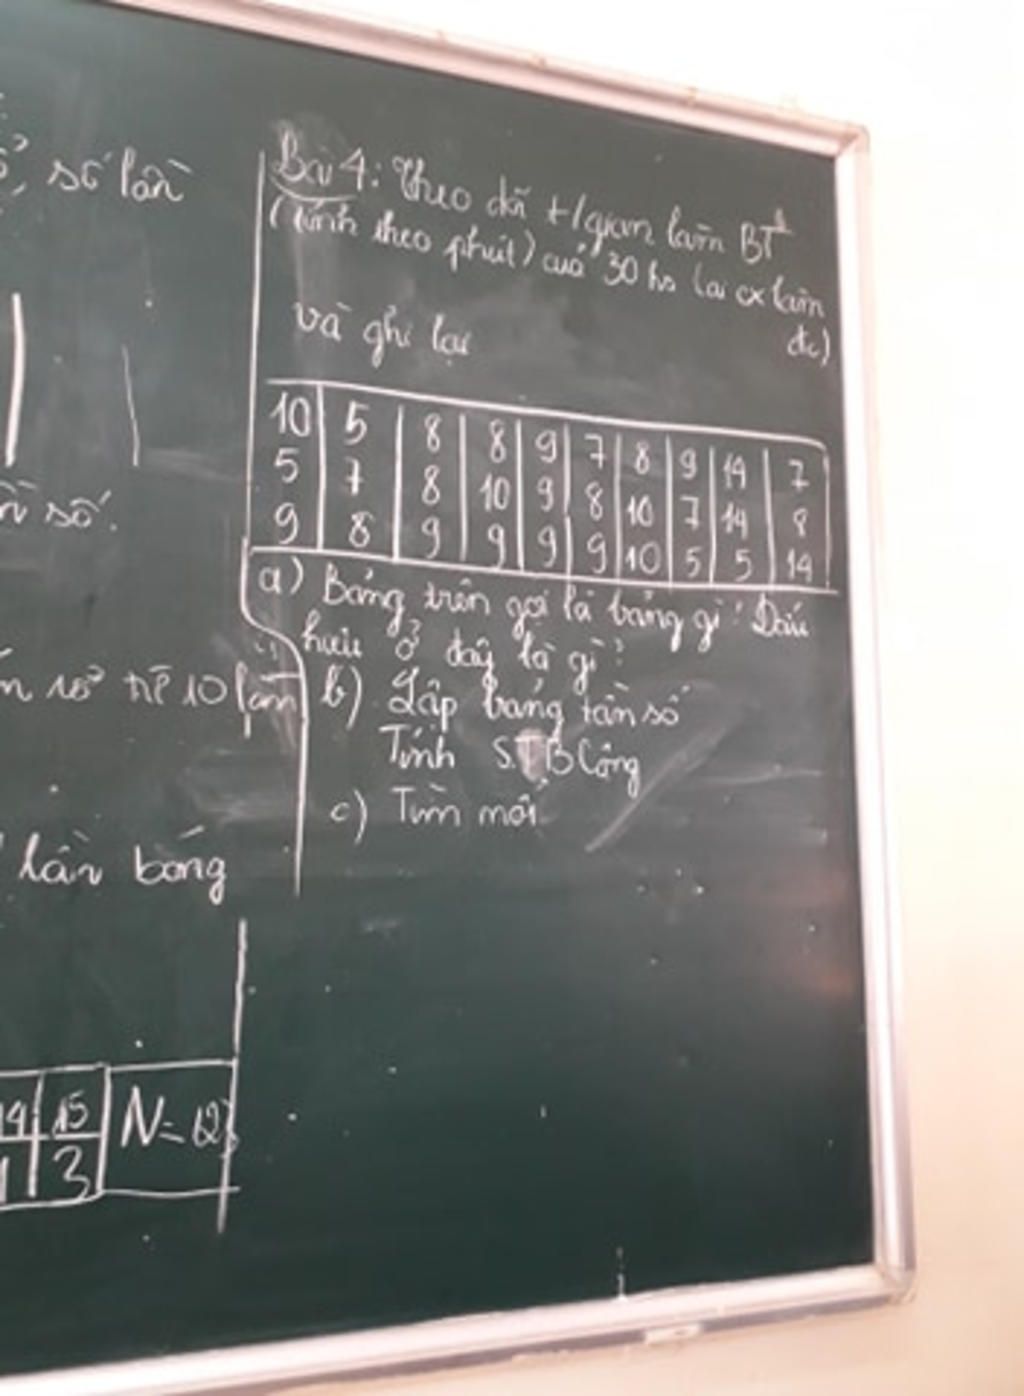 số lần
n số.
n số tiề 10 lần
lần bóng
14 15
1 3 N = 12
Bài 4: Theo dõi t/gian làm BT
(tính theo phút) của 30 hs (ai cx làm
đc)
và ghi lại
10 5 8 8 9 7 8 9 14 7
5 7 8 10 9 8 10 7 14 8
9 8 9 9 9 9 10 5 5 14
a) Bảng trên gọi là bảng gì? Dấu
hiệu ở đây là gì?
b) Lập bảng tần số
Tính S.TB Cộng
c) Tìm mốt